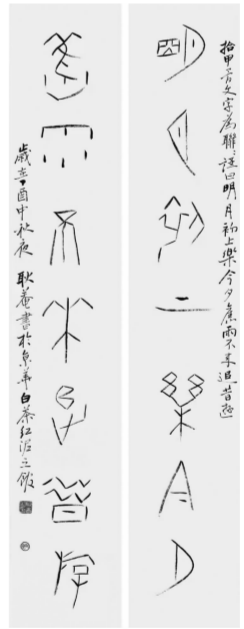 拾甲骨文字為聯語曰明月初上樂今夕舊雨不來追昔遊
明月初上樂今夕
舊雨不來追昔游
歲在丁酉中秋夜 耿菴書於京華白茶紅泥之館